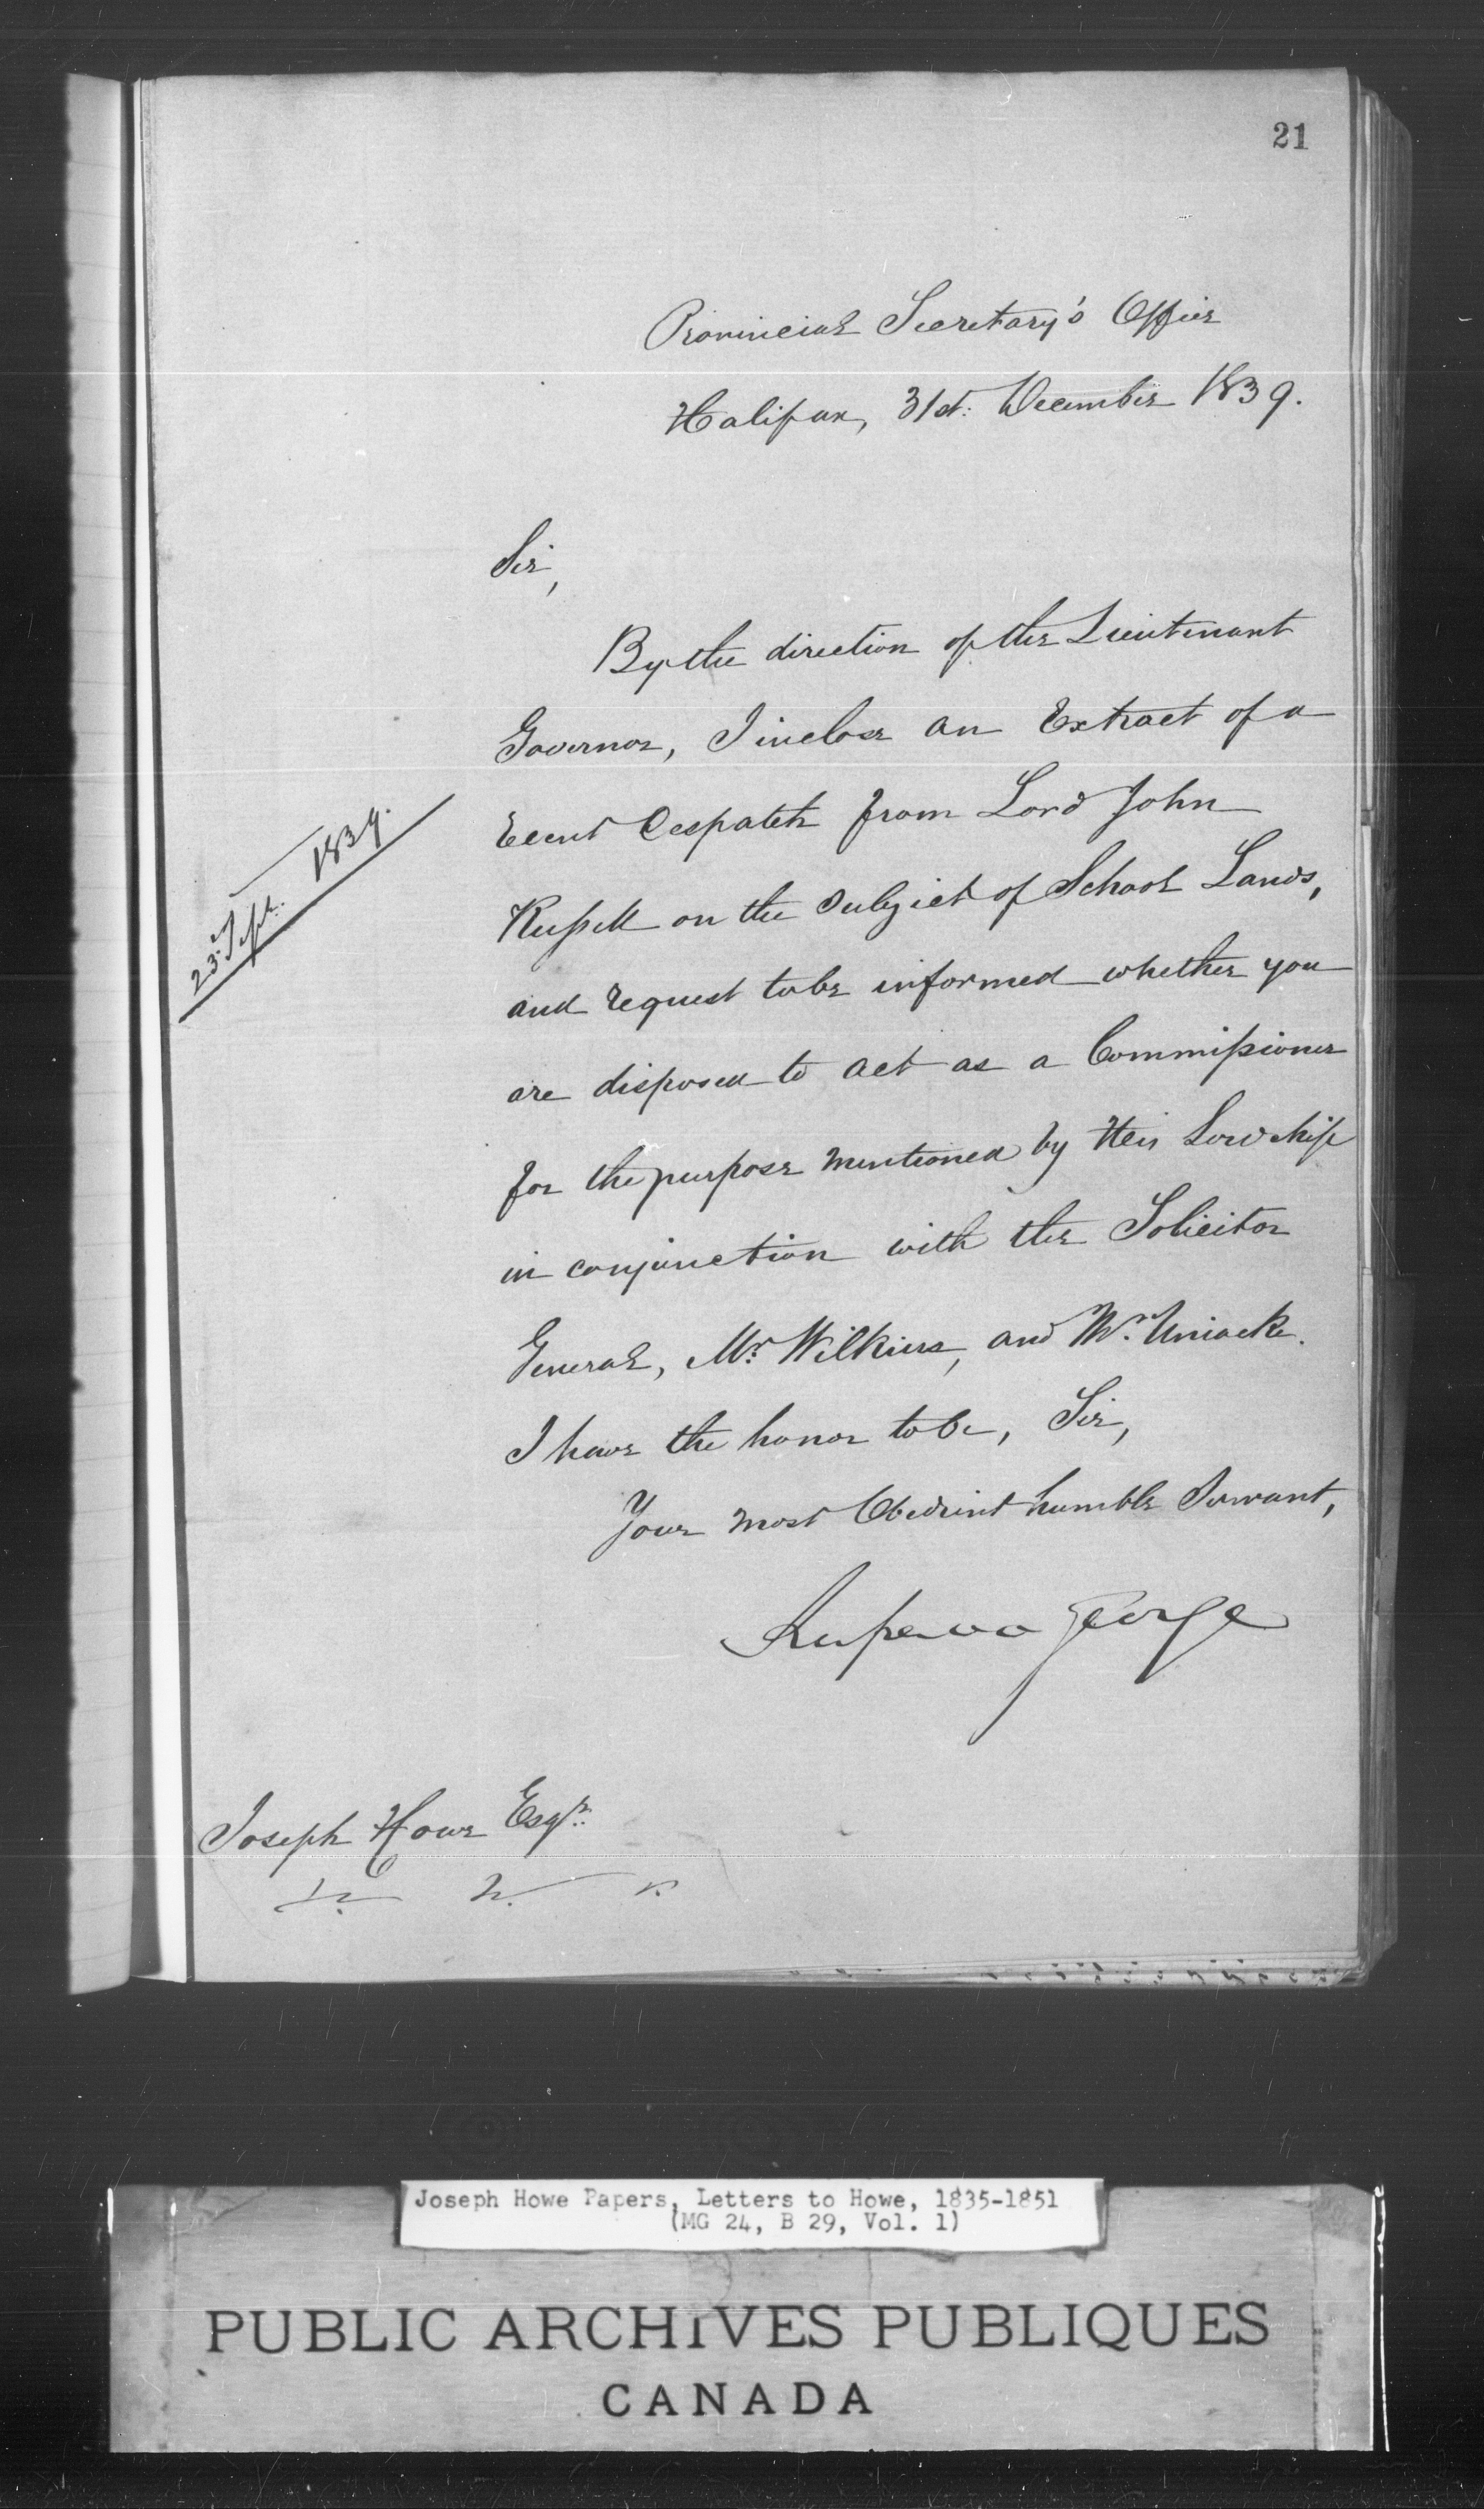 21
Provincial Secretary's Office
Halifax, 31st: December 1839.
Sir,
By the direction of the Lieutenant
Governor, I inclose an Extract of a
recent Despatch from Lord John
Russell on the subject of School Lands,
23d. Sept. 1839.
and request to be informed whether you
are disposed to act as a Commissioner
for the purpose mentioned by His Lordship
in conjunction with the Solicitor
General, Mr. Wilkins, and Mr. Uniacke.
I have the honor to be, Sir,
Your most Obedient humble Servant,
Rupert D George
Joseph Howe Esqr.
Joseph Howe Papers, Letters to Howe, 1835-1851
(MG 24, B 29, Vol. 1)
PUBLIC ARCHIVES PUBLIQUES
CANADA